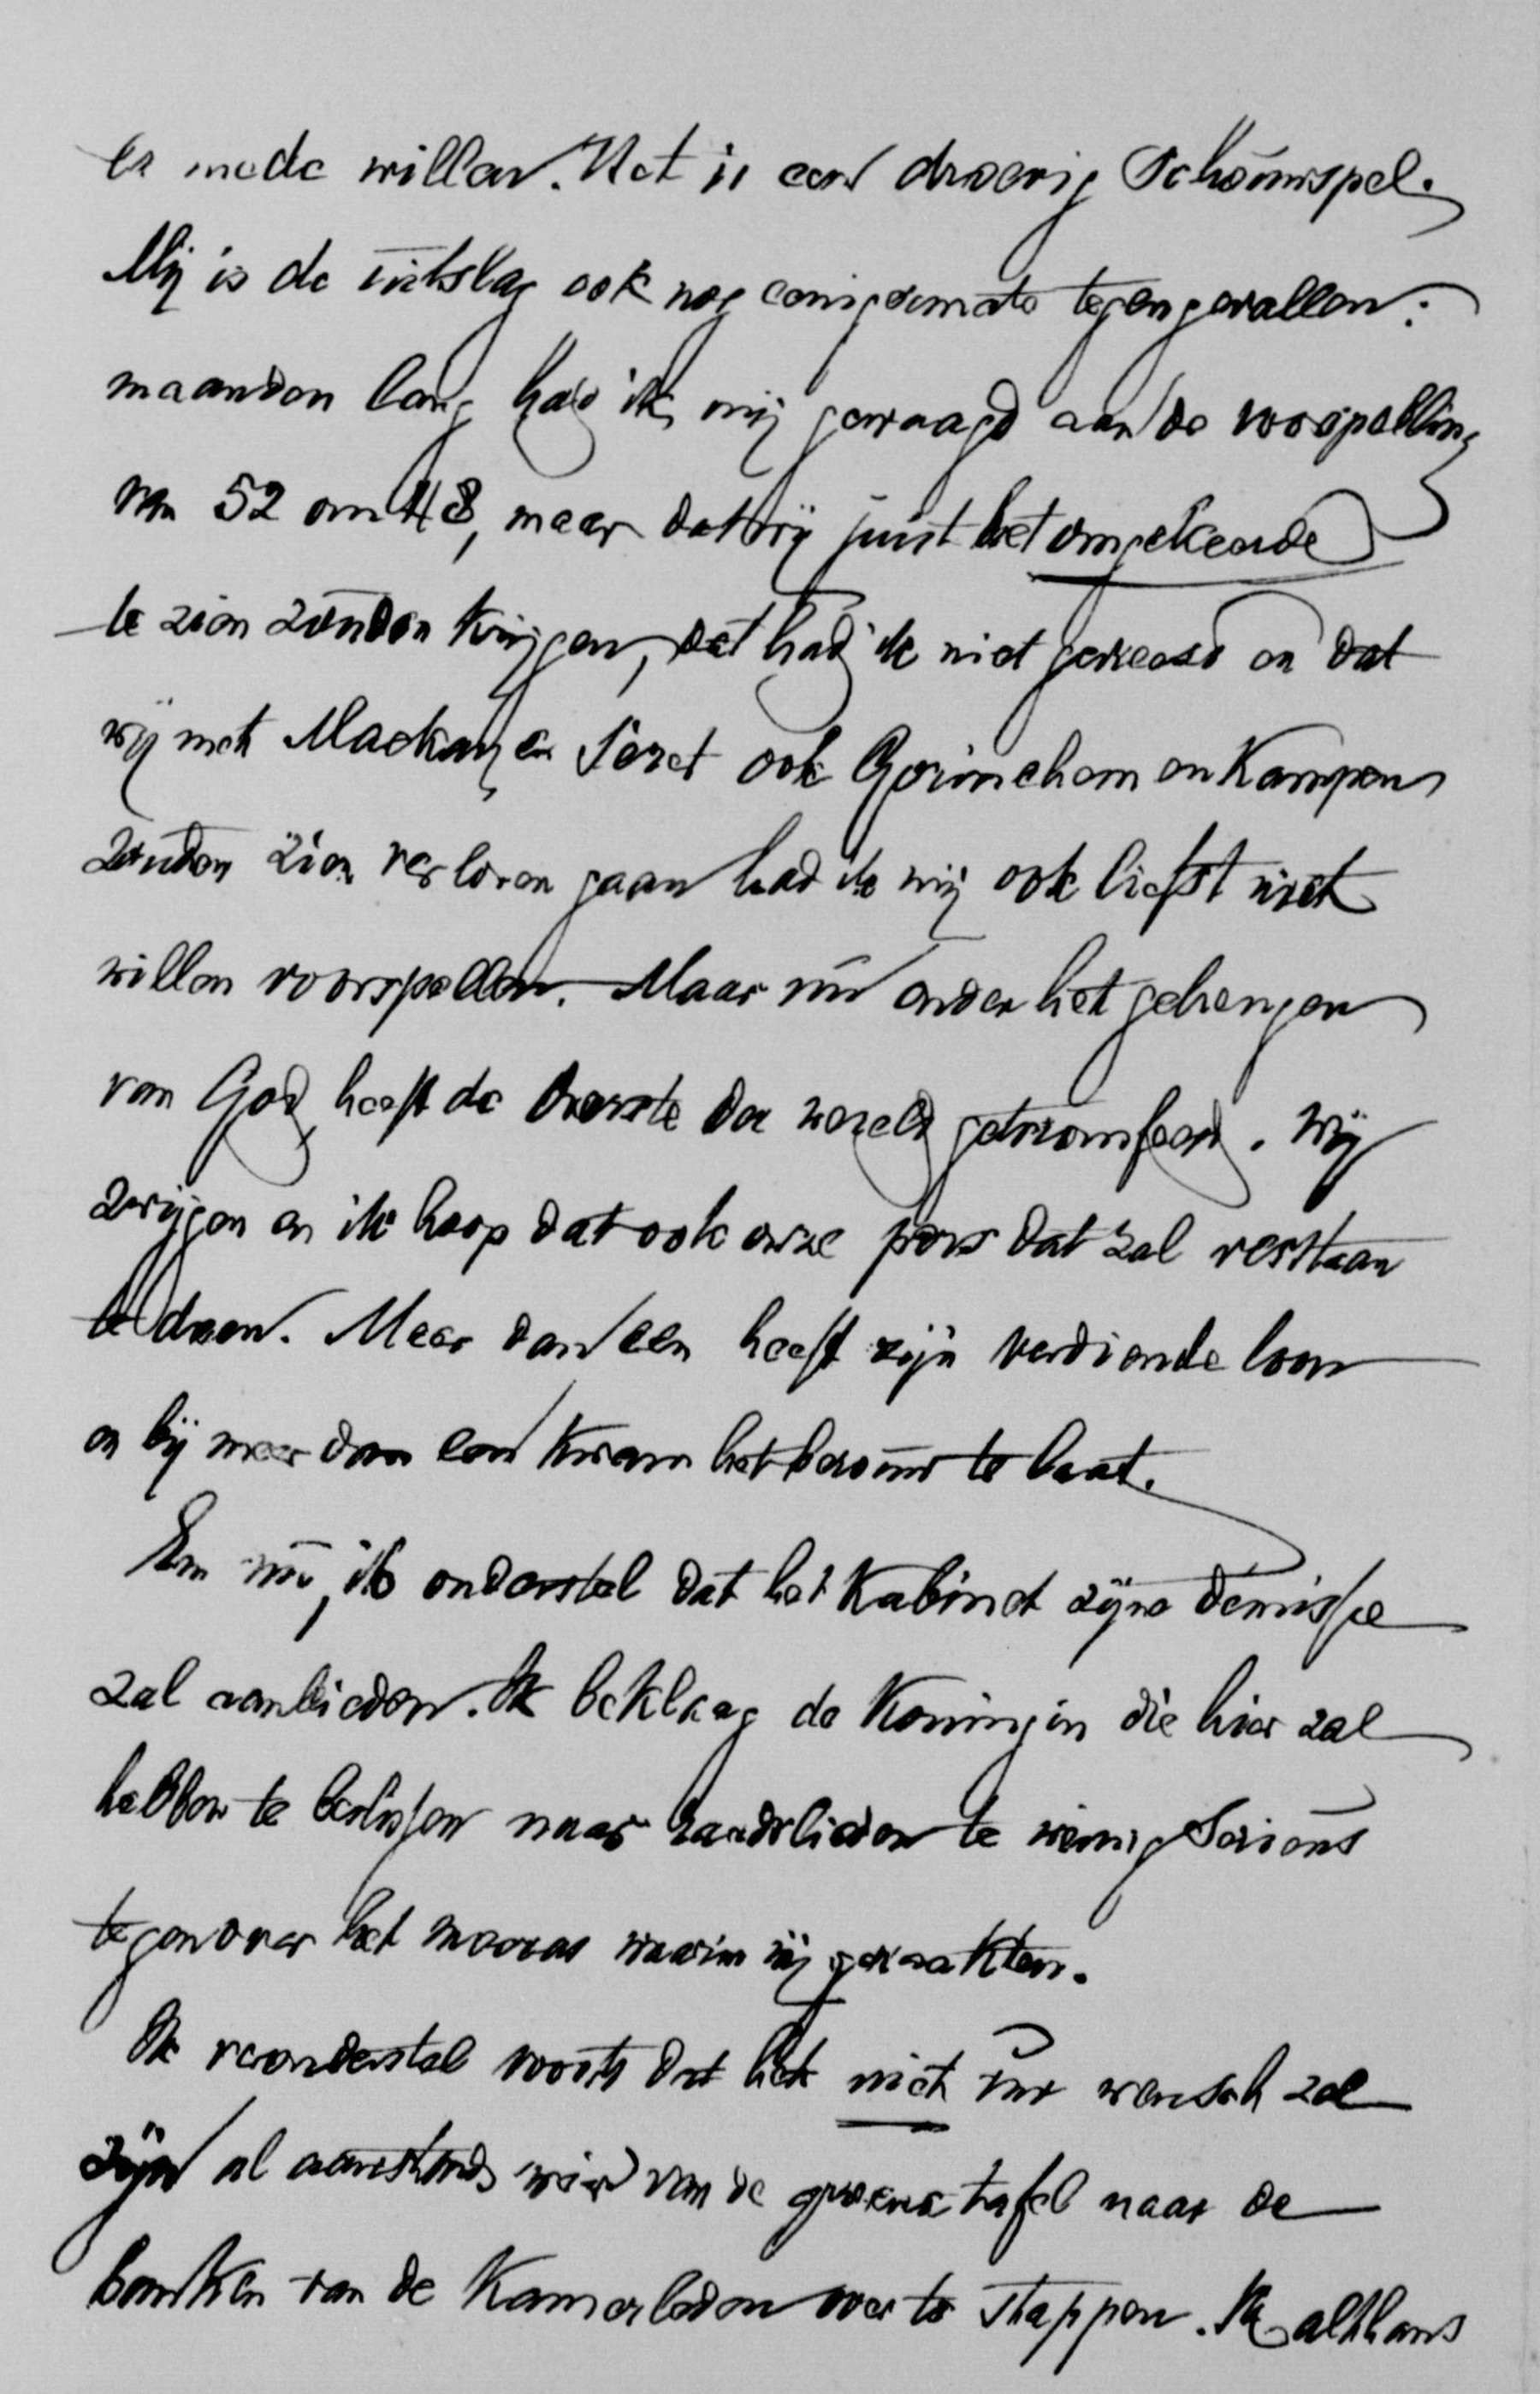 er mede willen. Het is een droevig schouwspel.
Mij is de uitslag ook nog eenigermate tegengevallen:
maanden lang had ik mij gewaagd aan de voorspelling
van 52 om 48, maar dat wij juist het omgekeerde
te zien zouden krijgen, dat had ik niet gevreesd en dat
wij met Mackay en Seret ook Gorinchem en Kampen
zouden zien verloren gaan had ik mij ook liefst niet
willen voorspellen. Maar nu onder het gehengen
van God heeft de Overste der wereld getriomfeerd. Wij
zwijgen en ik hoop dat ook onze pers dat zal verstaan
te doen. Meer dan een heeft zijn verdiende loon
en bij meer dan een kwam het berouw te laat.
En nu, ik onderstel dat het Kabinet zijne demissie
zal aanbieden. Ik beklaag de Koningin die hier zal
hebben te beslissen naar raadslieden te weinig serieus
tegenover het moeras waarin wij geraakten.
Ik veronderstel voorts dat het niet uw wensch zal
zijn al aanstonds weer van de groene tafel naar de
banken van de Kamerleden over te stappen. Ik althans